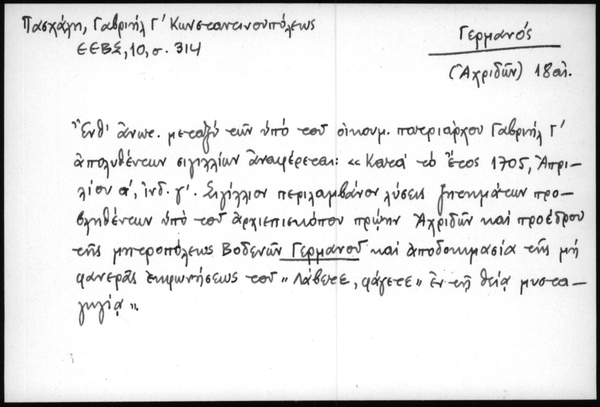 Πασχάλη, Γαβριήλ Γ' Κωνσταντινουπόλεως
ΕΕΒΣ, 10, σ. 314
Γερμανός
(Ἀχριδῶν) 18 αἰ.
Ἔνθ' ἀνωτ. μεταξύ τῶν ὑπό τοῦ οἰκουμ. πατριάρχου Γαβριήλ Γ'
ἀπολυθέντων σιγιλλίων ἀναφέρεται: «Κατά τό ἔτος 1705, Ἀπρι-
λίου α', ἰνδ. γ'. Σιγίλλιον περιλαμβάνον λύσεις ζητημάτων προ-
βληθέντων ὑπό τοῦ ἀρχιεπισκόπου πρώην Ἀχριδῶν καί προέδρου
τῆς μητροπόλεως Βοδενῶν Γερμανοῦ καί ἀποδοκιμασία τῆς μή
φανερᾶς ἐκφωνήσεως τοῦ "Λάβετε, φάγετε" ἐν τῇ θείᾳ μυστα-
γωγίᾳ».